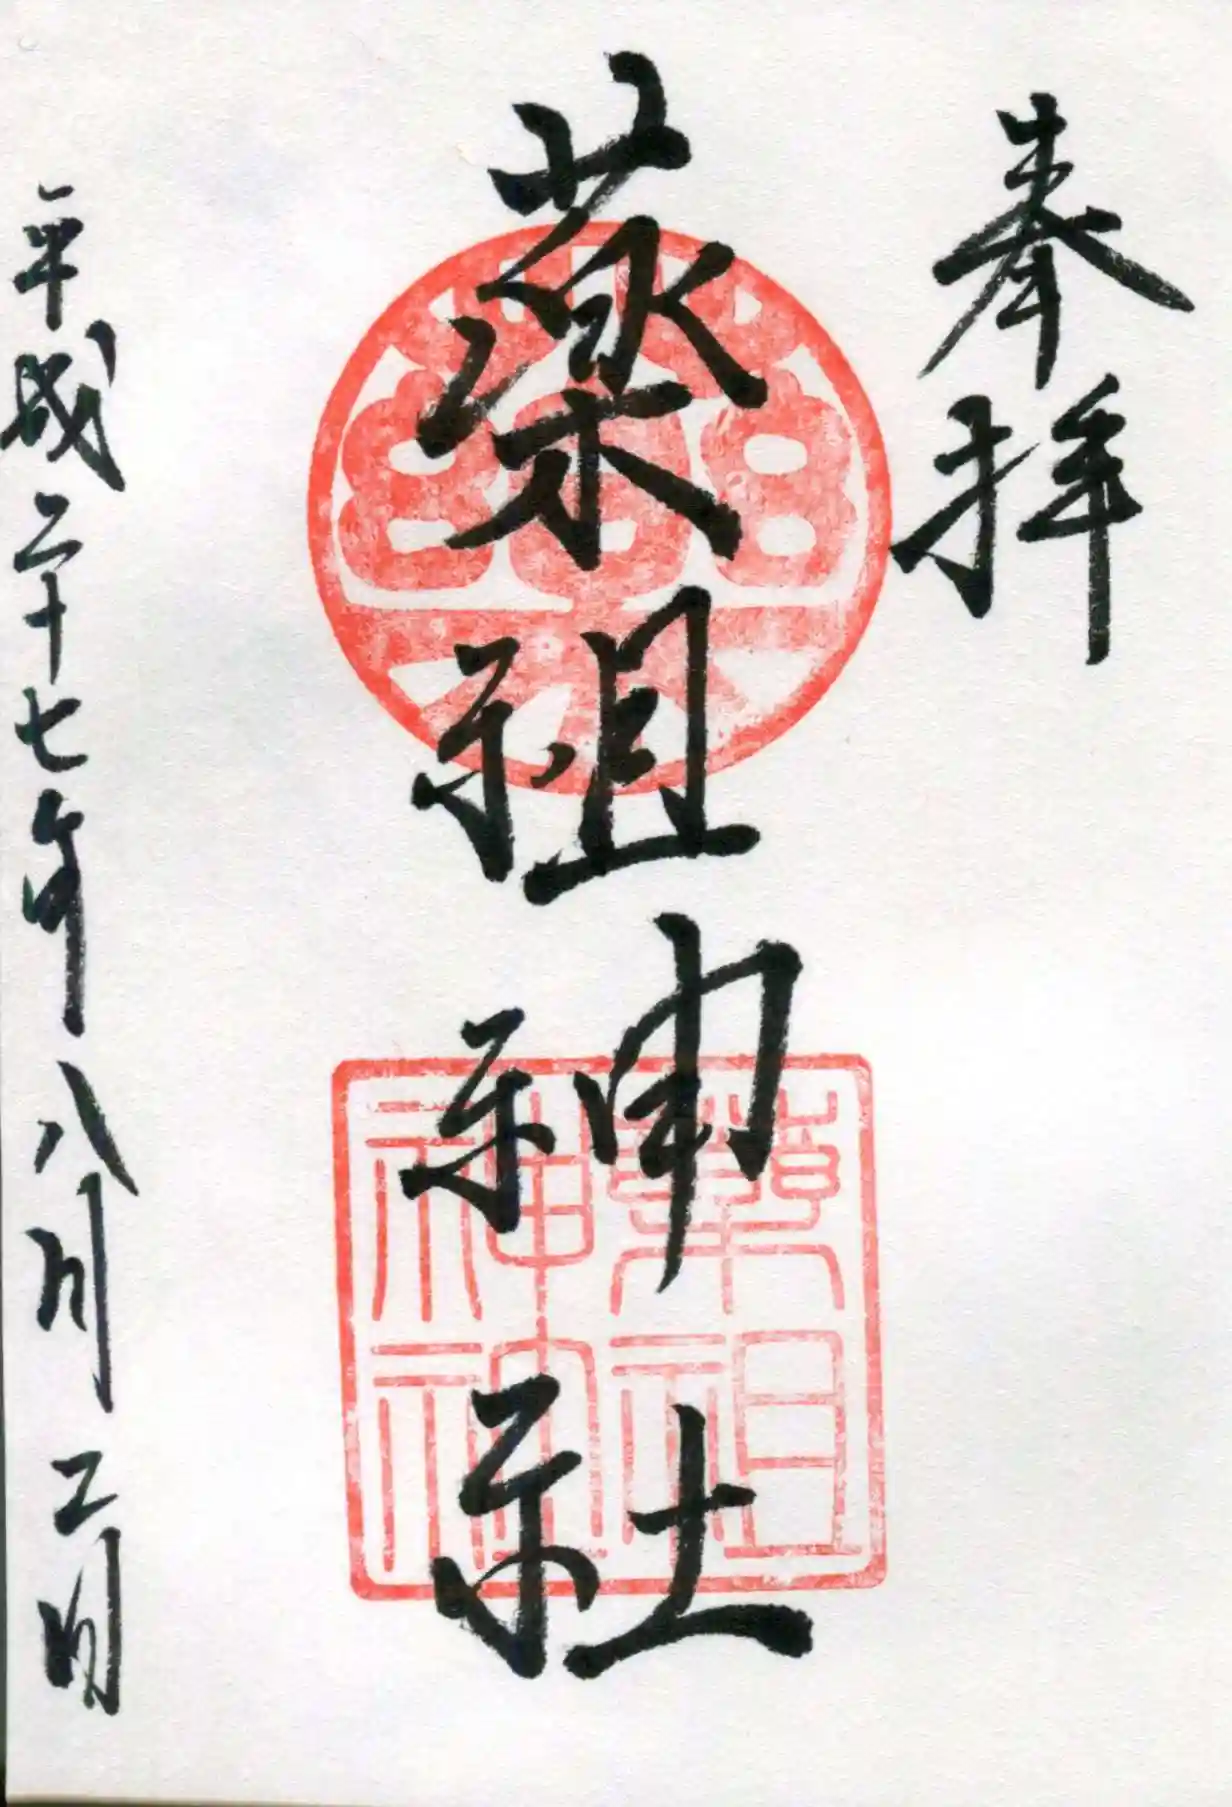 奉拝
薬祖神社
薬祖神社
平成二十七年八月二日